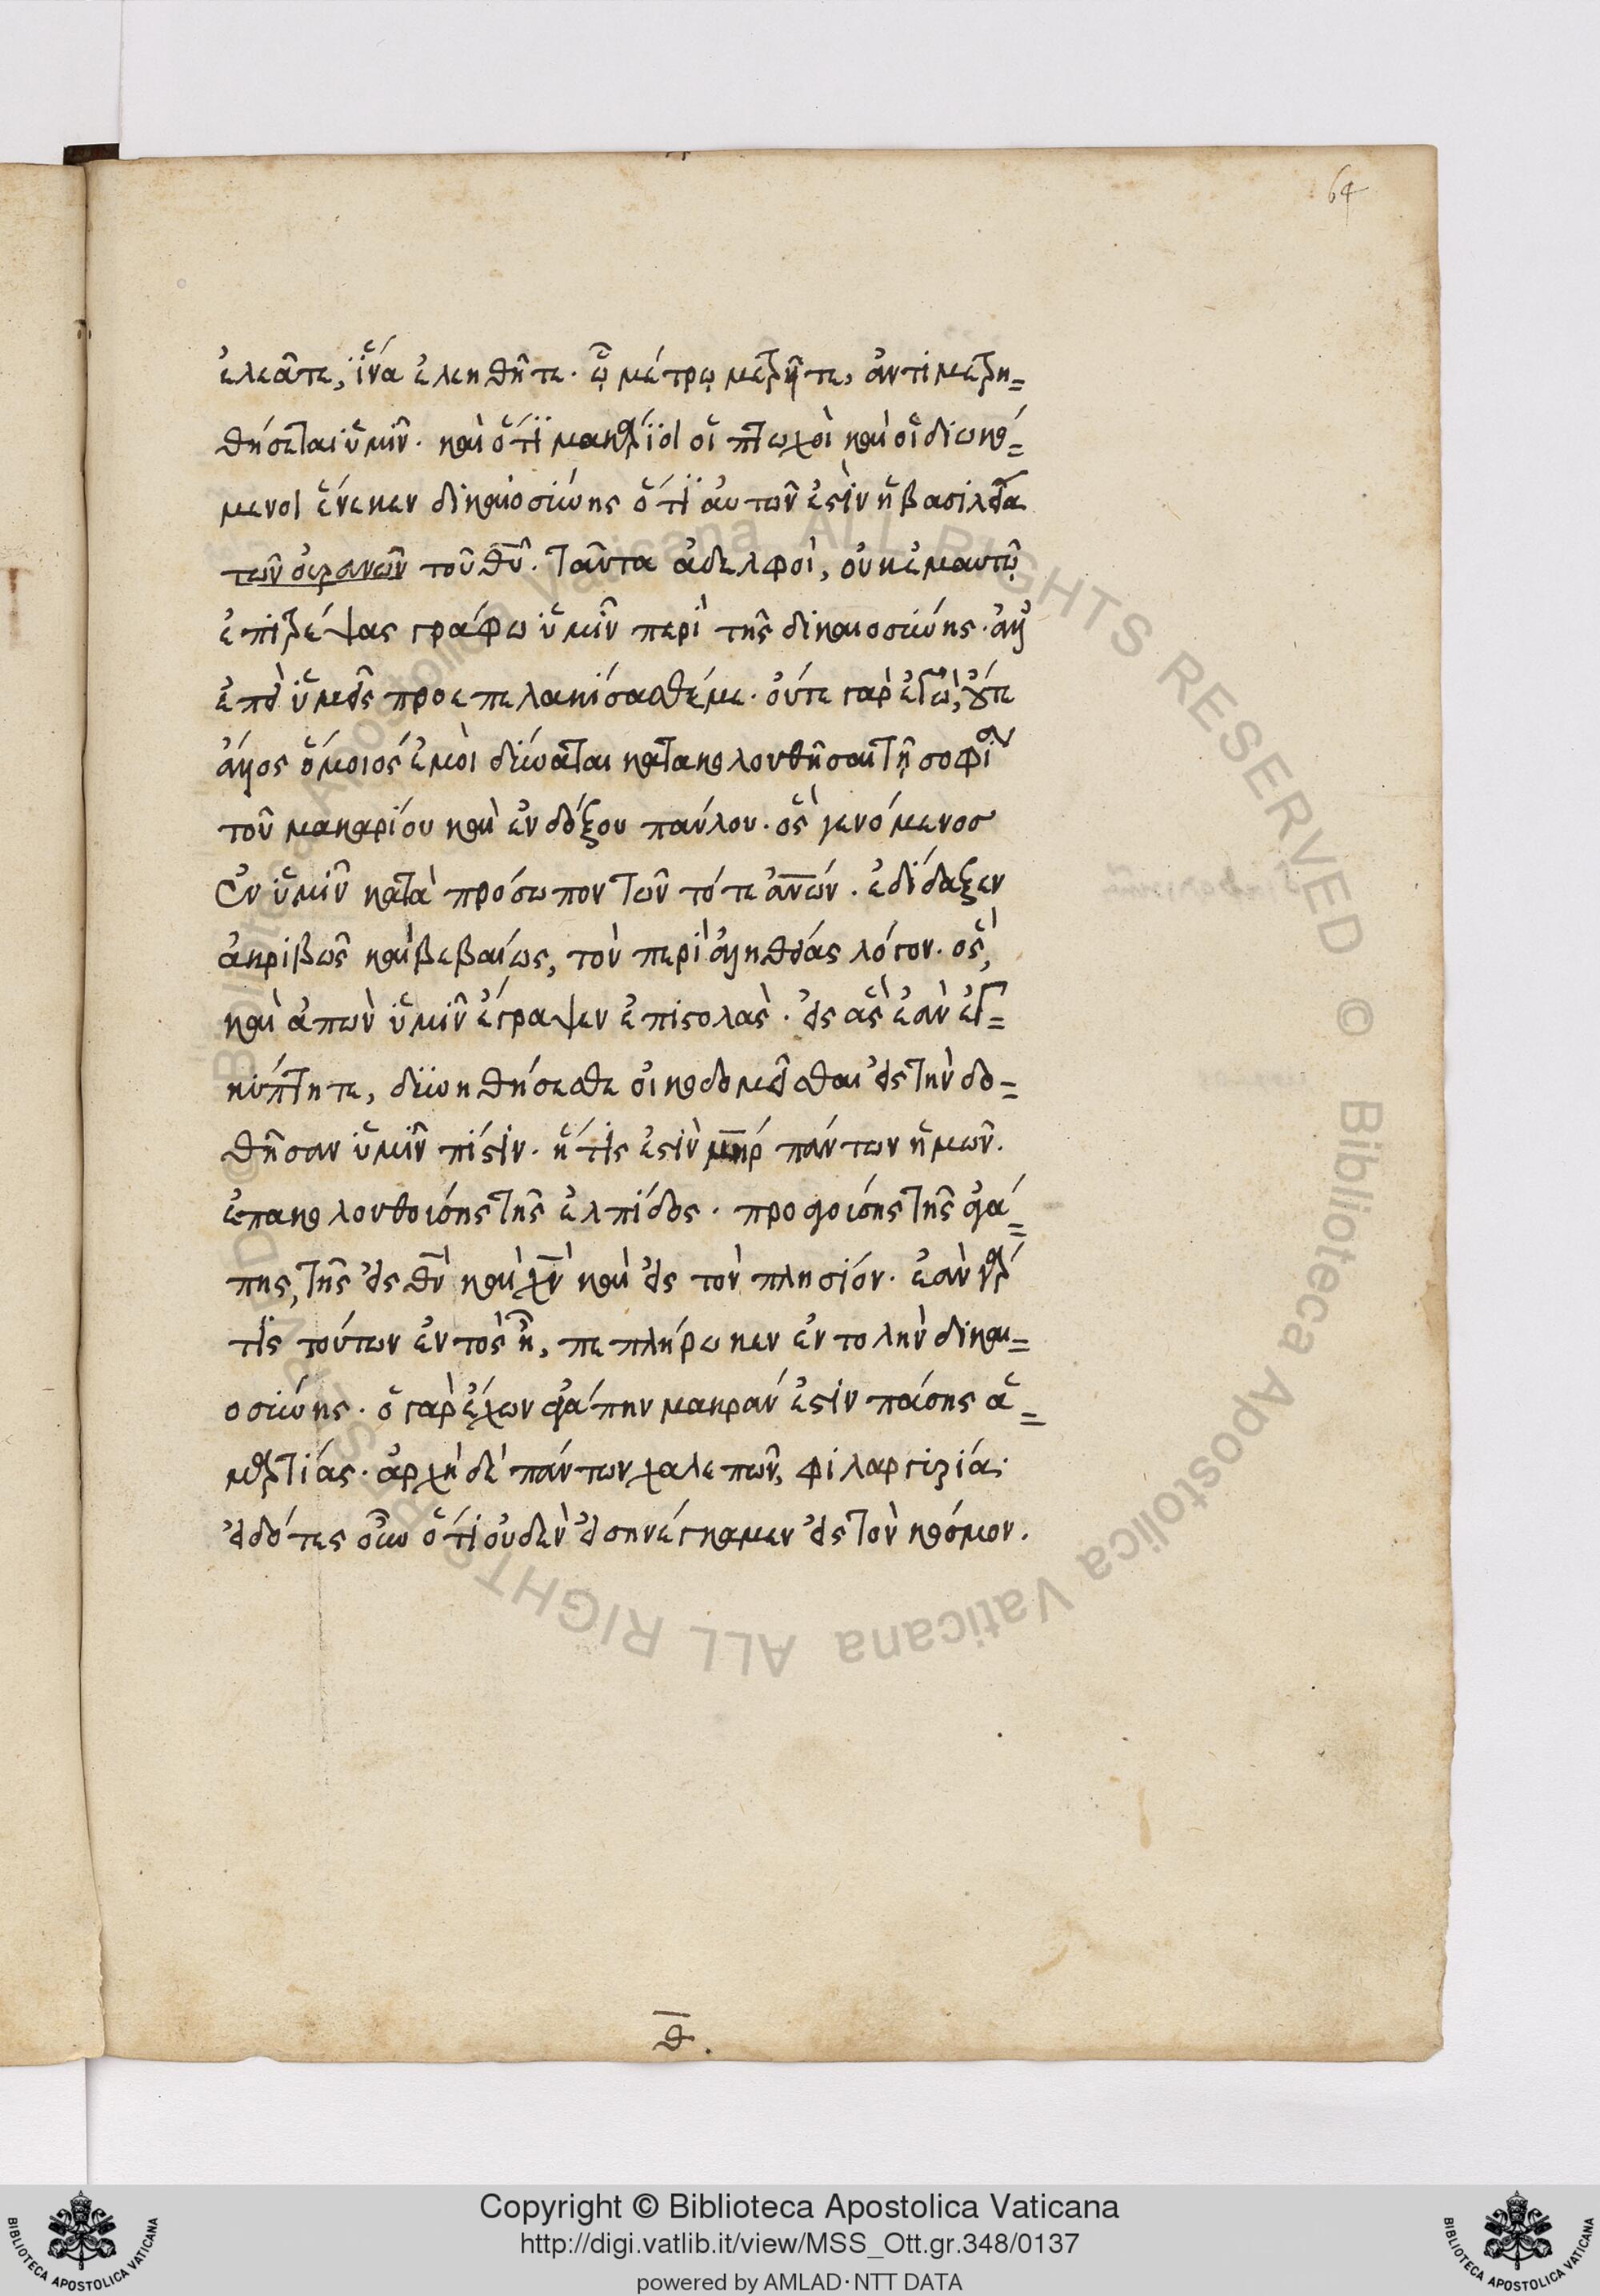 64
ἐλεᾶτε, ἵνα ἐλεηθῆτε· ᾧ μέτρῳ μετρῆτε, ἀντιμετρη=
θήσεται ὑμῖν· καὶ ὅτι μακάριοι οἱ πτωχοὶ καὶ οἱ διωκό=
μενοι ἕνεκεν δικαιοσύνης ὅτι αὐτῶν ἐστὶν ἡ βασιλεία
τῶν οὐρανῶν τοῦ θυ̅. ταῦτα ἀδελφοὶ, οὐκ ἐμαυτῷ
ἐπιτρέψας γράφω ὑμῖν περὶ τῆς δικαιοσύνης· ἀλλ
ἐπεὶ ὑμεῖς προεπελακίσασθέ με· οὔτε γὰρ ἐγὼ, οὔτε
ἄλλος ὅμοιός ἐμοὶ δύναται κατακολουθῆσαι τῇ σοφίᾳ
τοῦ μακαρίου καὶ ἐνδόξου παύλου· ὃς γενόμενος
ἐν ὑμῖν κατὰ πρόσωπον τῶν τότε ἀν̅ων· ἐδίδαξεν
ἀκριβῶς καὶ βεβαίως, τὸν περὶ ἀληθείας λόγον· ὃς,
καὶ ἀπὼν ὑμῖν ἔγραψεν ἐπιστολὰς· εἰς ἃς ἐὰν ἐγ=
κύπτητε, δυνηθήσεσθε οἰκοδομεῖσθαι εἰς τὴν δο=
θῆσαν ὑμῖν πίστιν· ἥτις ἐστὶν μη̅ρ πάντων ἡμῶν.
ἐπακολουθούσης τῆς ἐλπίδος· προαγούσης τῆς ἀγά=
πης, τῆς εἰς θν̅ καὶ χν̅ καὶ εἰς τὸν πλησίον· ἐὰν γάρ
τις τούτων ἐντὸς ᾖ, πεπλήρωκεν ἐντολὴν δικαι=
οσύνης· ὁ γὰρ ἔχων ἀγάπην μακράν ἐστιν πάσης ἁ=
μαρτίας· ἀρχὴ δὲ πάντων χαλεπῶν, φιλαργυρία·
εἰδότες οὖν ὅτι οὐδὲν εἰσηνέγκαμεν εἰς τὸν κόσμον.
θ̅.
Copyright © Biblioteca Apostolica Vaticana
http://digi.vatlib.it/view/MSS_Ott.gr.348/0137
powered by AMLAD·NTT DATA
BIBLIOTECA APOSTOLICA VATICANA
BIBLIOTECA APOSTOLICA VATICANA
© Biblioteca Apostolica Vaticana ALL RIGHTS RESERVED © Biblioteca Apostolica Vaticana ALL RIGHTS RESERVED